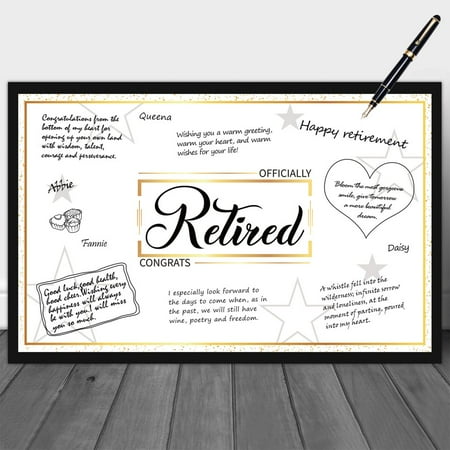 Queena
Congratulations from the
bottom of my heart for
opening up your own land
with wisdom, talent,
courage and perseverance.
Wishing you a warm greeting,
warm your heart, and warm
wishes for your life!
Happy retirement
Abbie
OFFICIALLY
Retired
CONGRATS
Bloom the most gorgeous
smile, give tomorrow
a more beautiful
dream.
Fannie
Daisy
Good luck, good health,
hood cheer. Wishing every
happiness will always
be with you! I will miss
you so much.
I especially look forward to
the days to come when, as in
the past, we will still have
wine, poetry and freedom.
A whistle fell into the
wilderness; infinite sorrow
and loneliness, at the
moment of parting, poured
into my heart.